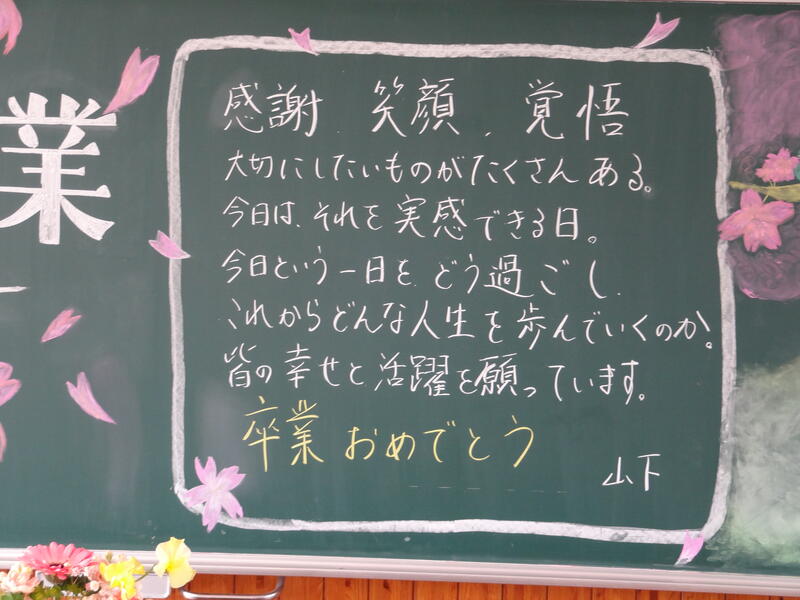 業
感謝、笑顔、覚悟
大切にしたいものがたくさんある。
今日は、それを実感できる日。
今日という一日を、どう過ごし、
これからどんな人生を歩んでいくのか。
皆の幸せと活躍を願っています。
卒業おめでとう
山下